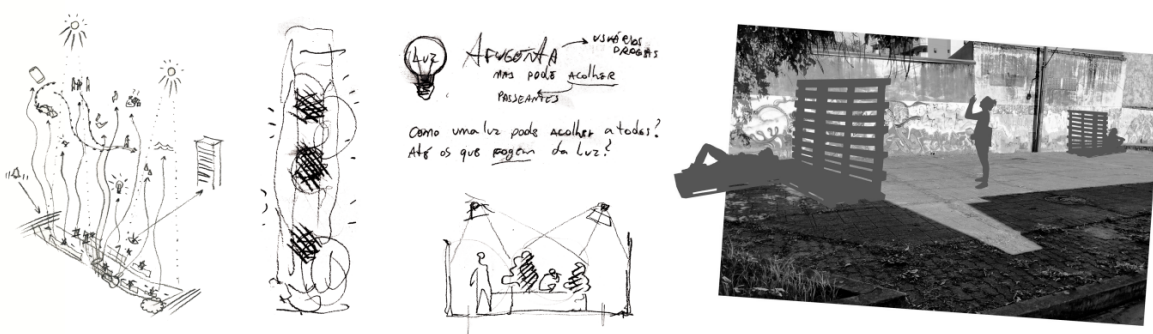 LUZ
AFUGENTA
USUÁRIOS
DROGAS
MAS PODE ACOLHER
PASSEANTES
COMO UMA LUZ PODE ACOLHER A TODOS?
ATÉ OS QUE FOGEM DA LUZ?